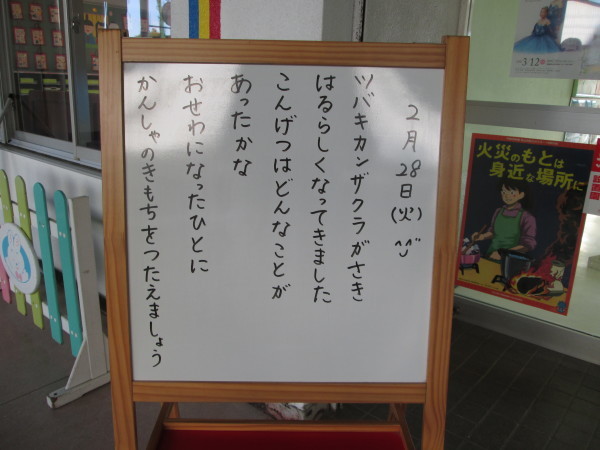 2月28日(火)^^
ツバキカンザクラがさき
はるらしくなってきました
こんげつはどんなことが
あったかな
おせわになったひとに
かんしゃのきもちをつたえましょう
3/12
火災のもとは
身近な場所に